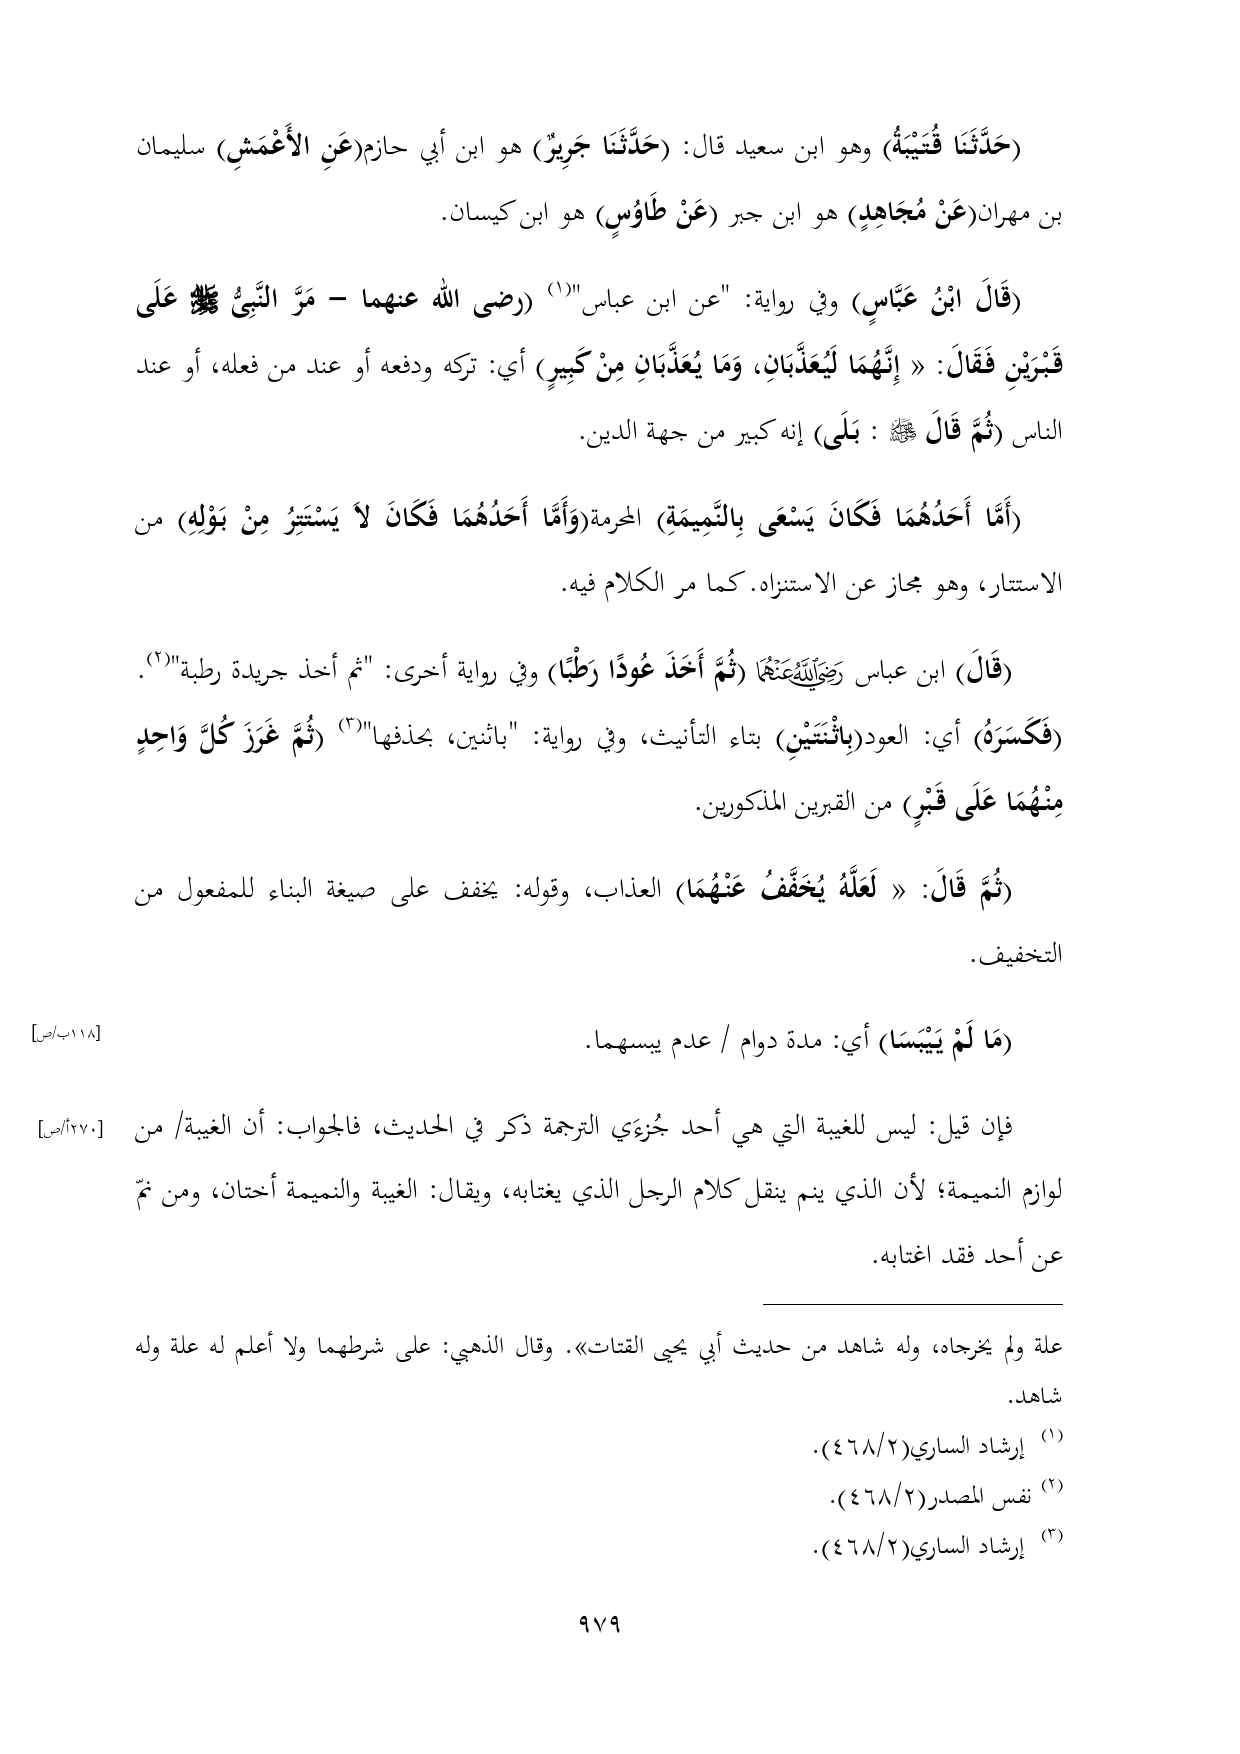 (حَدَّثَنَا قُتَيْبَةُ) وهو ابن سعيد قال: (حَدَّثَنَا جَرِيرٌ) هو ابن أبي حازم(عَنِ الأَعْمَشِ) سليمان
بن مهران(عَنْ مُجَاهِدٍ) هو ابن جبر (عَنْ طَاوُسٍ) هو ابن كيسان.
(قَالَ ابْنُ عَبَّاسٍ) وفي رواية: "عن ابن عباس"(١) (رضى الله عنهما – مَرَّ النَّبِىُّ ﷺ عَلَى
قَبْرَيْنِ فَقَالَ: « إِنَّهُمَا لَيُعَذَّبَانِ، وَمَا يُعَذَّبَانِ مِنْ كَبِيرٍ) أي: تركه ودفعه أو عند من فعله، أو عند
الناس (ثُمَّ قَالَ ﷺ : بَلَى) إنه كبير من جهة الدين.
(أَمَّا أَحَدُهُمَا فَكَانَ يَسْعَى بِالنَّمِيمَةِ) المحرمة(وَأَمَّا أَحَدُهُمَا فَكَانَ لاَ يَسْتَتِرُ مِنْ بَوْلِهِ) من
الاستتار، وهو مجاز عن الاستنزاه. كما مر الكلام فيه.
(قَالَ) ابن عباس رَضِيَ اللَّهُ عَنْهُمَا (ثُمَّ أَخَذَ عُودًا رَطْبًا) وفي رواية أخرى: "ثم أخذ جريدة رطبة"(٢).
(فَكَسَرَهُ) أي: العود(بِاثْنَتَيْنِ) بتاء التأنيث، وفي رواية: "باثنين، بحذفها"(٣) (ثُمَّ غَرَزَ كُلَّ وَاحِدٍ
مِنْهُمَا عَلَى قَبْرٍ) من القبرين المذكورين.
(ثُمَّ قَالَ: « لَعَلَّهُ يُخَفَّفُ عَنْهُمَا) العذاب، وقوله: يخفف على صيغة البناء للمفعول من
التخفيف.
(مَا لَمْ يَيْبَسَا) أي: مدة دوام / عدم يبسهما.
[١١٨ب/ص]
فإن قيل: ليس للغيبة التي هي أحد جُزءَي الترجمة ذكر في الحديث، فالجواب: أن الغيبة/ من
[٢٧٠أ/ص]
لوازم النميمة؛ لأن الذي ينم ينقل كلام الرجل الذي يغتابه، ويقال: الغيبة والنميمة أختان، ومن نمّ
عن أحد فقد اغتابه.
علة ولم يخرجاه، وله شاهد من حديث أبي يحيى القتات». وقال الذهبي: على شرطهما ولا أعلم له علة وله
شاهد.
(١) إرشاد الساري(٤٦٨/٢).
(٢) نفس المصدر(٤٦٨/٢).
(٣) إرشاد الساري(٤٦٨/٢).
٩٧٩